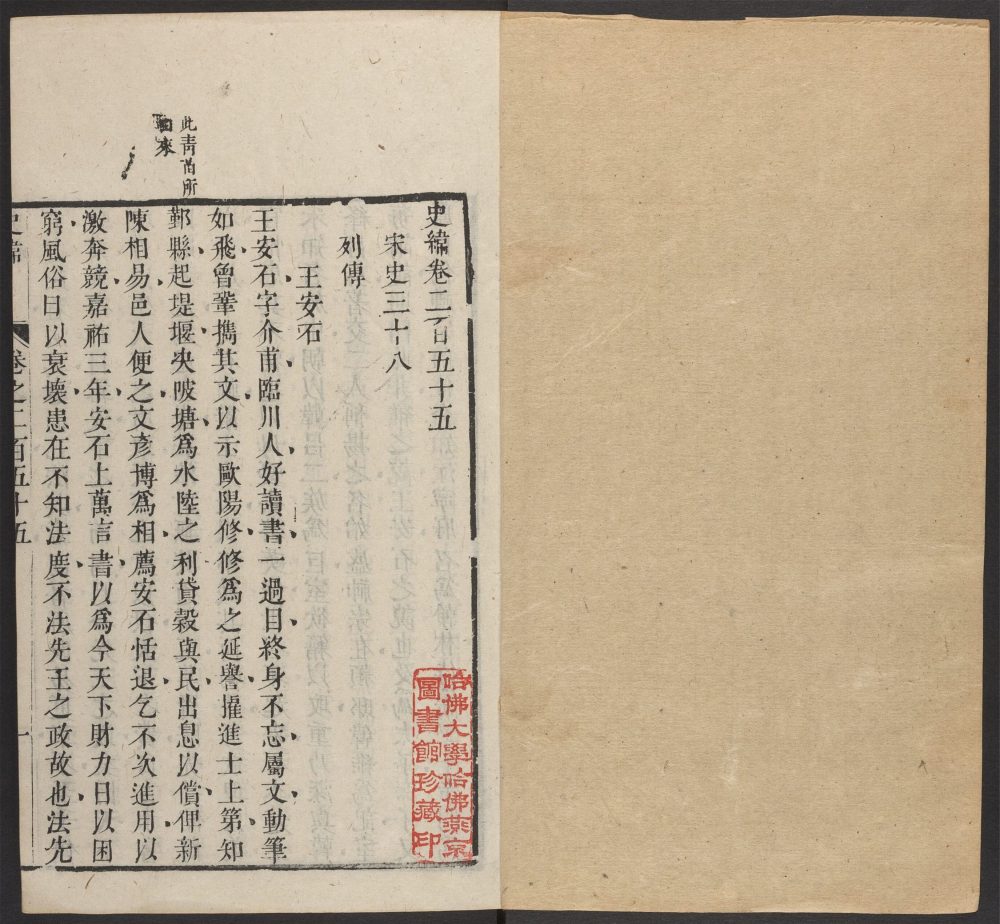 史緯卷二百五十五
宋史三十八
列傳
王安石
王安石字介甫臨川人好讀書一過目終身不忘屬文動筆
如飛曾鞏携其文以示歐陽修修爲之延譽擢進士上第知
鄞縣起堤堰决陂塘爲水陸之利貸穀與民出息以償俾新
陳相易邑人便之文彥博爲相薦安石恬退乞不次進用以
激奔競嘉祐三年安石上萬言書以爲今天下財力日以困
窮風俗日以衰壞患在不知法度不法先王之政故也法先
史緯
卷之二百五十五
一
此青苗所
由來
哈佛大學哈佛燕京
圖書館珍藏印